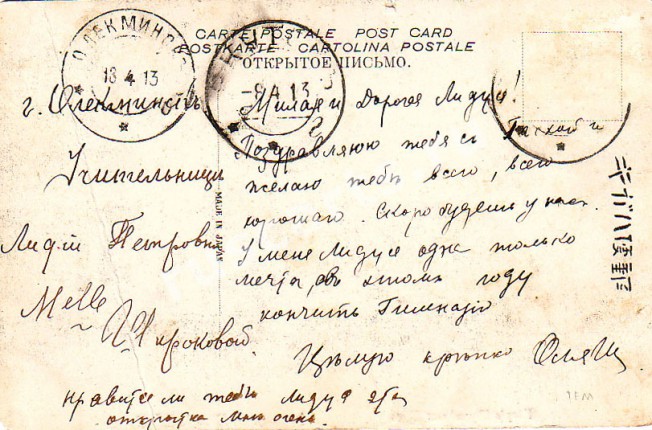 CARTE POSTALE POST CARD
POSTKARTE CARTOLINA POSTALE
ОТКРЫТОЕ ПИСЬМО.
ОЛЕКМИНСК
18 4 13
-9.4.13
г. Олекминскъ
Учительницѣ
Лидiи Петровнѣ
Melle
MADE IN JAPAN
Милая и Дорогая Лидуся!
Поздравляю тебя съ Пасхой и
желаю тебѣ всего, всего
хорошаго. Скоро будешь у насъ.
У меня Лидуся одна только
мечта, въ этомъ году
кончить Гимназiю
Цѣлую крѣпко Оля
нравится ли тебѣ Лидуся эта
открытка мнѣ очень.